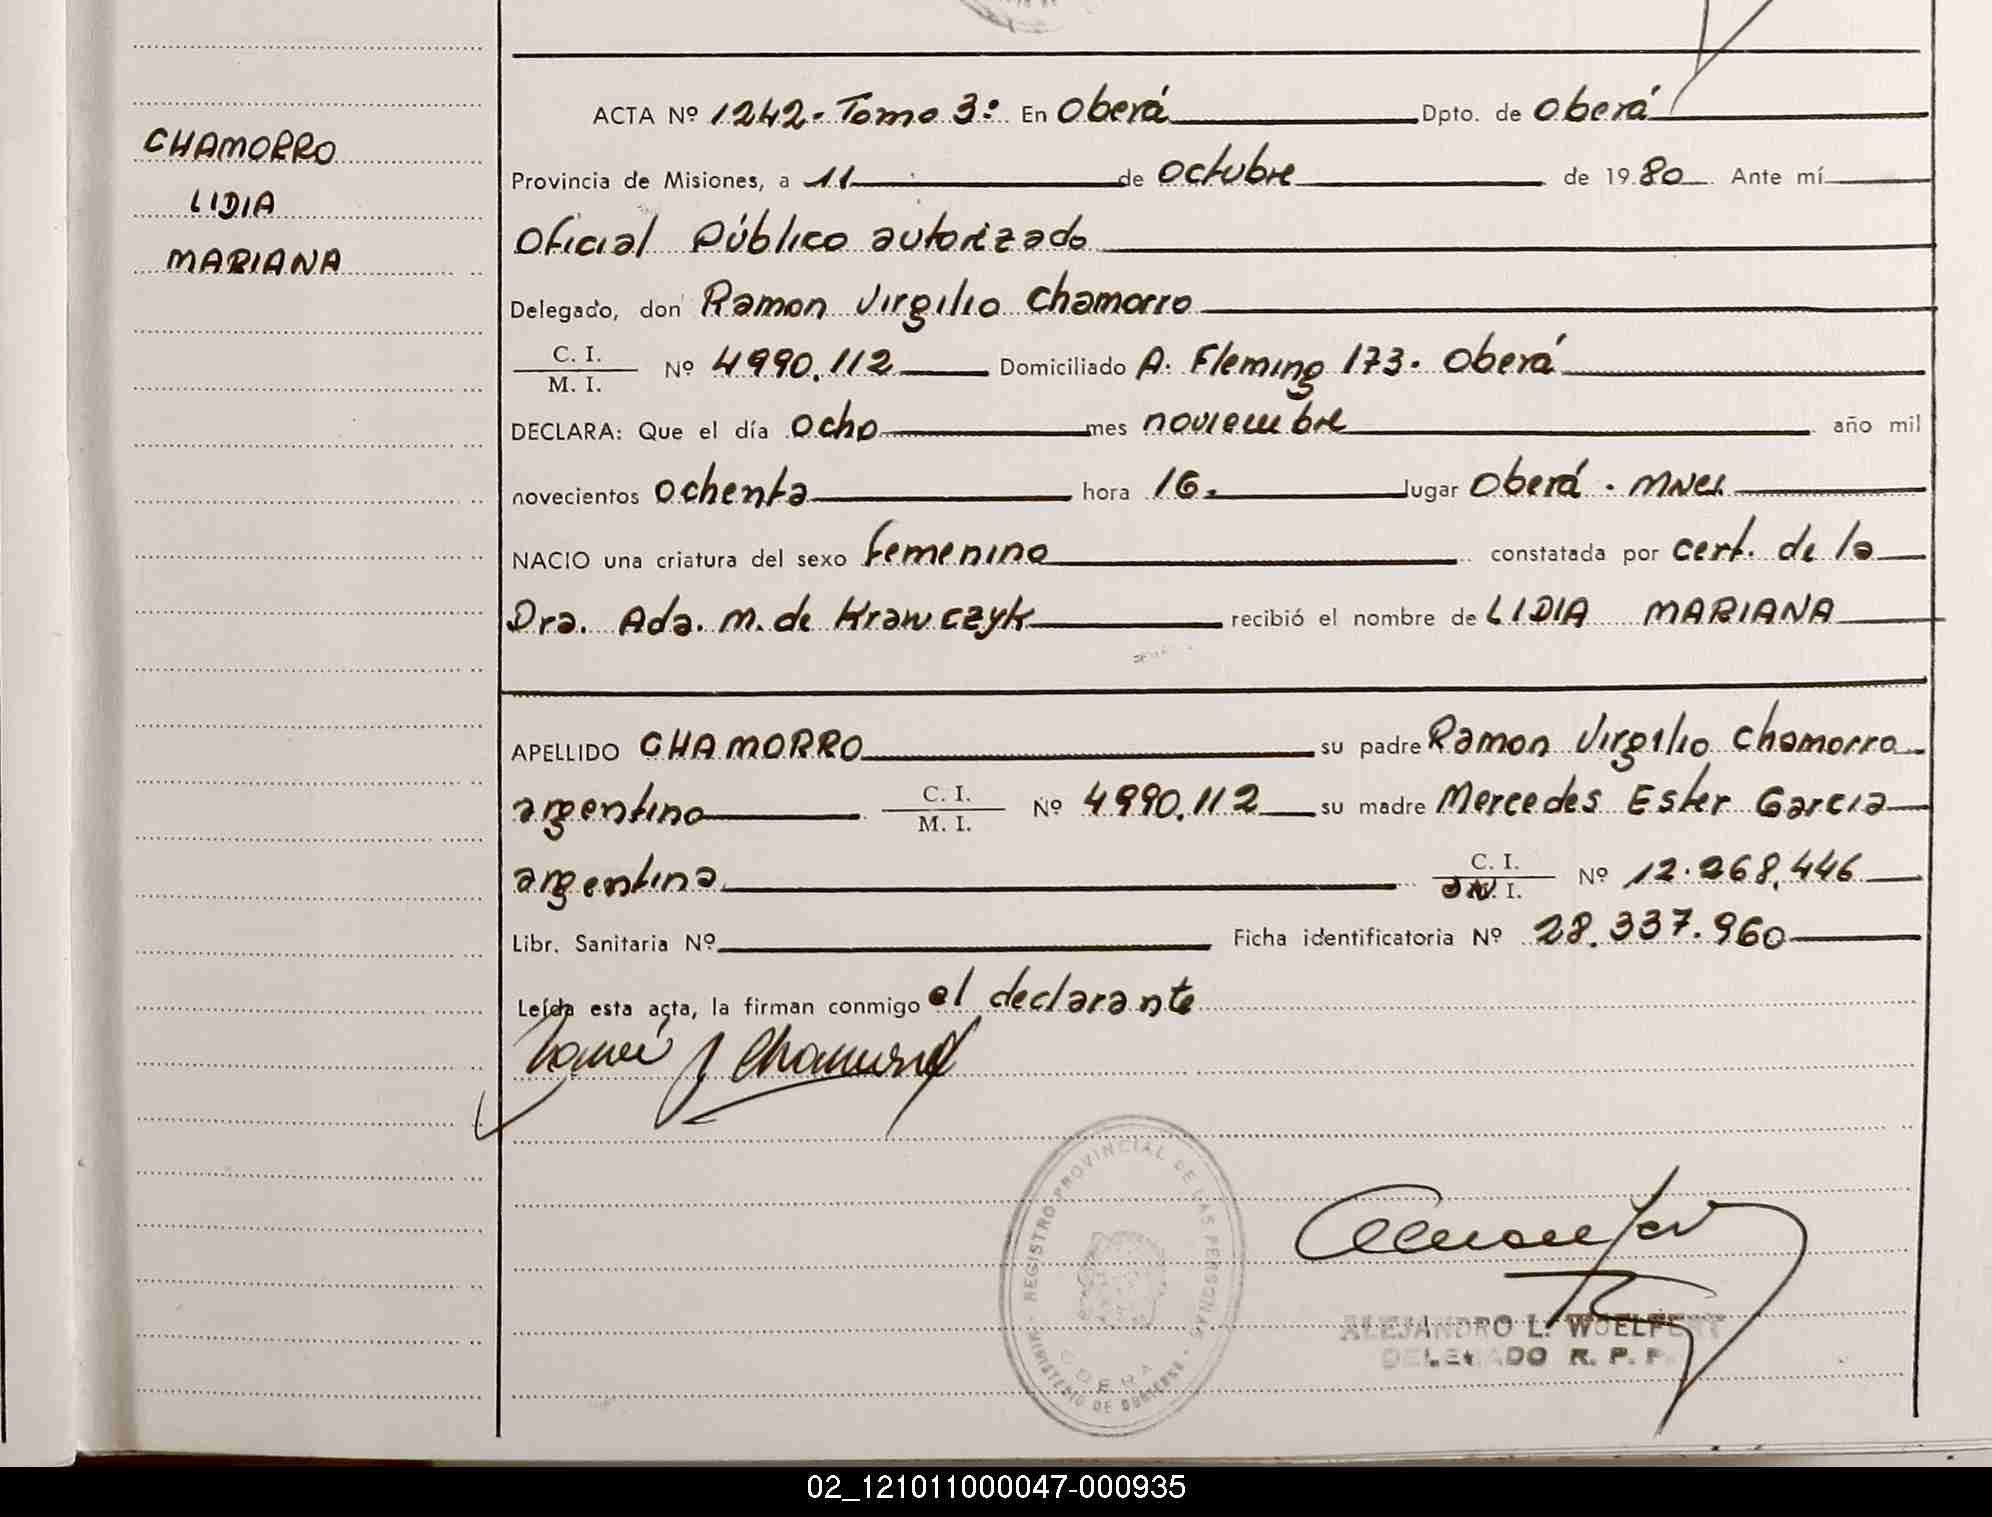 CHAMORRO
LIDIA
MARIANA
ACTA Nº 1242. Tomo 3: En Oberá Dpto. de Oberá
Provincia de Misiones, a 11 de octubre de 1980 Ante mí
Oficial Público autorizado
Delegado, don Ramon Virgilio Chamorro
C. I.
M. I. Nº 4990.112 Domiciliado A. Fleming 173. Oberá
DECLARA: Que el día ocho mes noviembre año mil
novecientos ochenta hora 16. lugar Oberá. Mnes.
NACIO una criatura del sexo femenino constatada por cert. de la
Dra. Ada. M. de Krawczyk recibió el nombre de LIDIA MARIANA
APELLIDO CHAMORRO su padre Ramon Virgilio Chamorro
argentino C. I.
M. I. Nº 4990.112 su madre Mercedes Ester Garcia
argentina C. I.
I. Nº 12.268.446
Libr. Sanitaria Nº Ficha identificatoria Nº 28.337.960
Leída esta acta, la firman conmigo el declarante
MINISTERIO DE GOBIERNO - REGISTRO PROVINCIAL DE LAS PERSONAS
OBERA
ALEJANDRO L. WOELFERT
DELEGADO R. P. P.
02_121011000047-000935